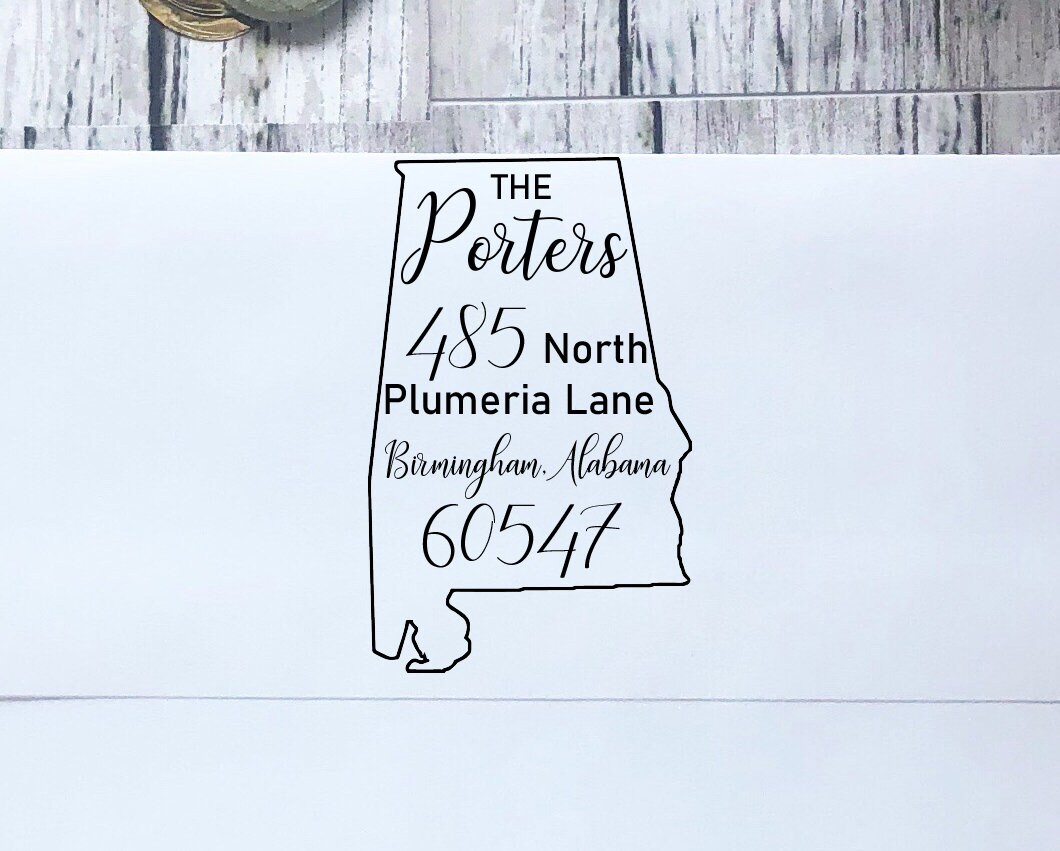 THE
Porters
485 North
Plumeria Lane
Birmingham, Alabama
60547